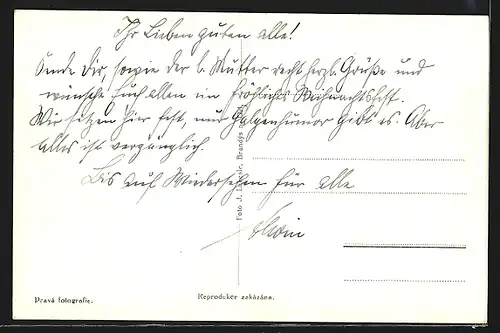 Ihr Lieben guten alle!
Sende Dir, sowie der l. Mutter recht herzl. Grüße und
wünsche Euch allen ein fröhliches Weihnachtsfest.
Wir sitzen hier fest, nur Galgenhumor gibt es. Aber
alles ist vergänglich.
Bis auf Wiedersehen für alle
Foto J. Brandýs
Pravá fotografie.
Reprodukce zakázána.